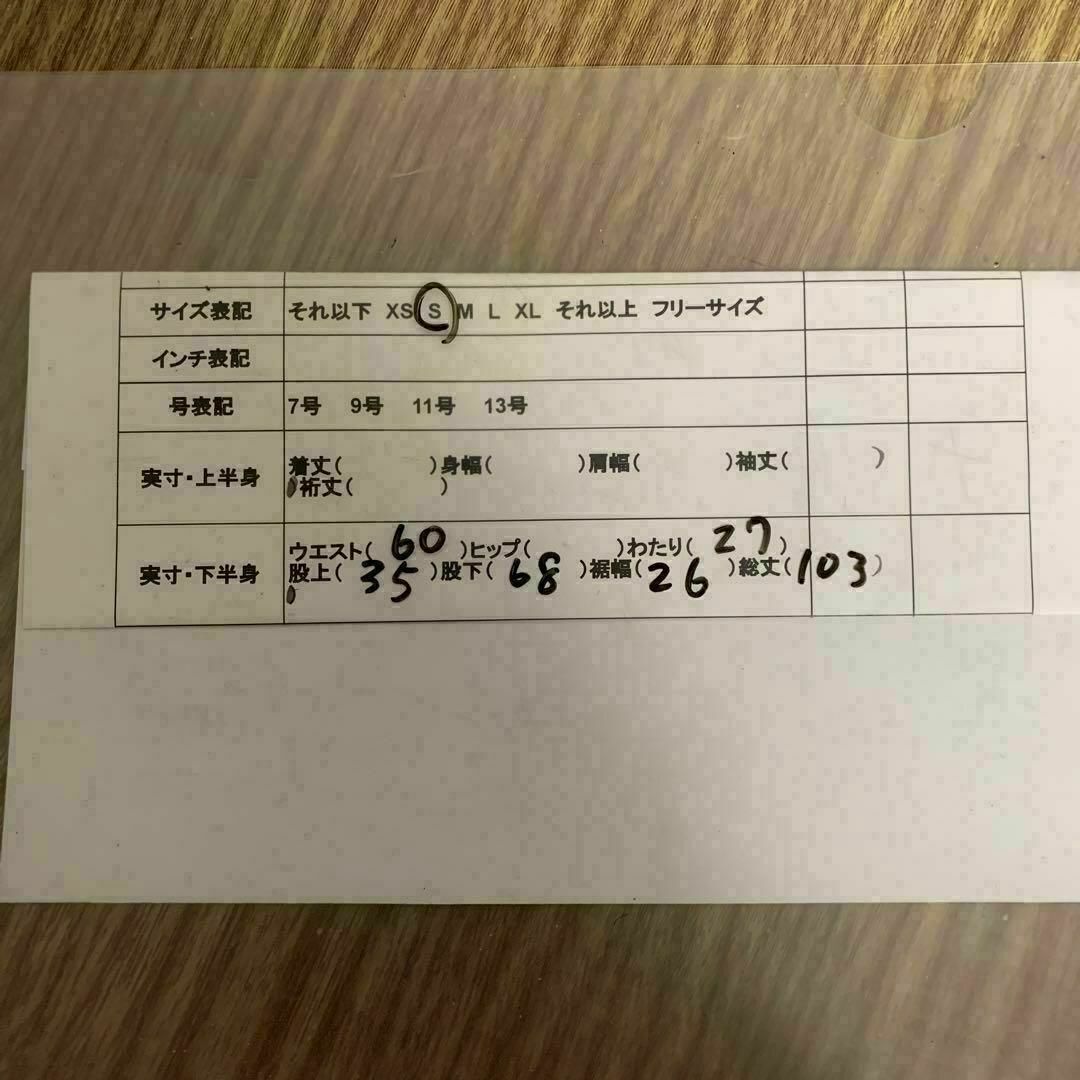 サイズ表記 それ以下 XS S M L XL それ以上 フリーサイズ
インチ表記
号表記 7号 9号 11号 13号
実寸・上半身 着丈( )身幅( )肩幅( )袖丈( )
)裄丈( )
実寸・下半身 ウエスト( 60 )ヒップ( )わたり( 27 )
股上( 35 )股下( 68 )裾幅( 26 )総丈( 103 )
)